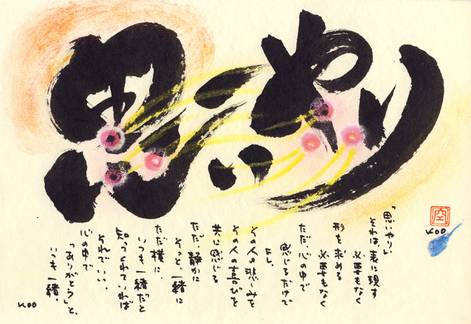 思いやり
空
KOO
「思いやり」
それは、表に現す
必要もなく
形を求める
必要もなく
ただ、心の中で
感じるだけで
よし
その人の悲しみを
その人の喜びを
共に感じる
ただ、静かに
そっと一緒に
ただ横に
いつも一緒だと
知ってくれていれば
それで・・・
心の中で
「ありがとう」と、
いつも一緒
KOO